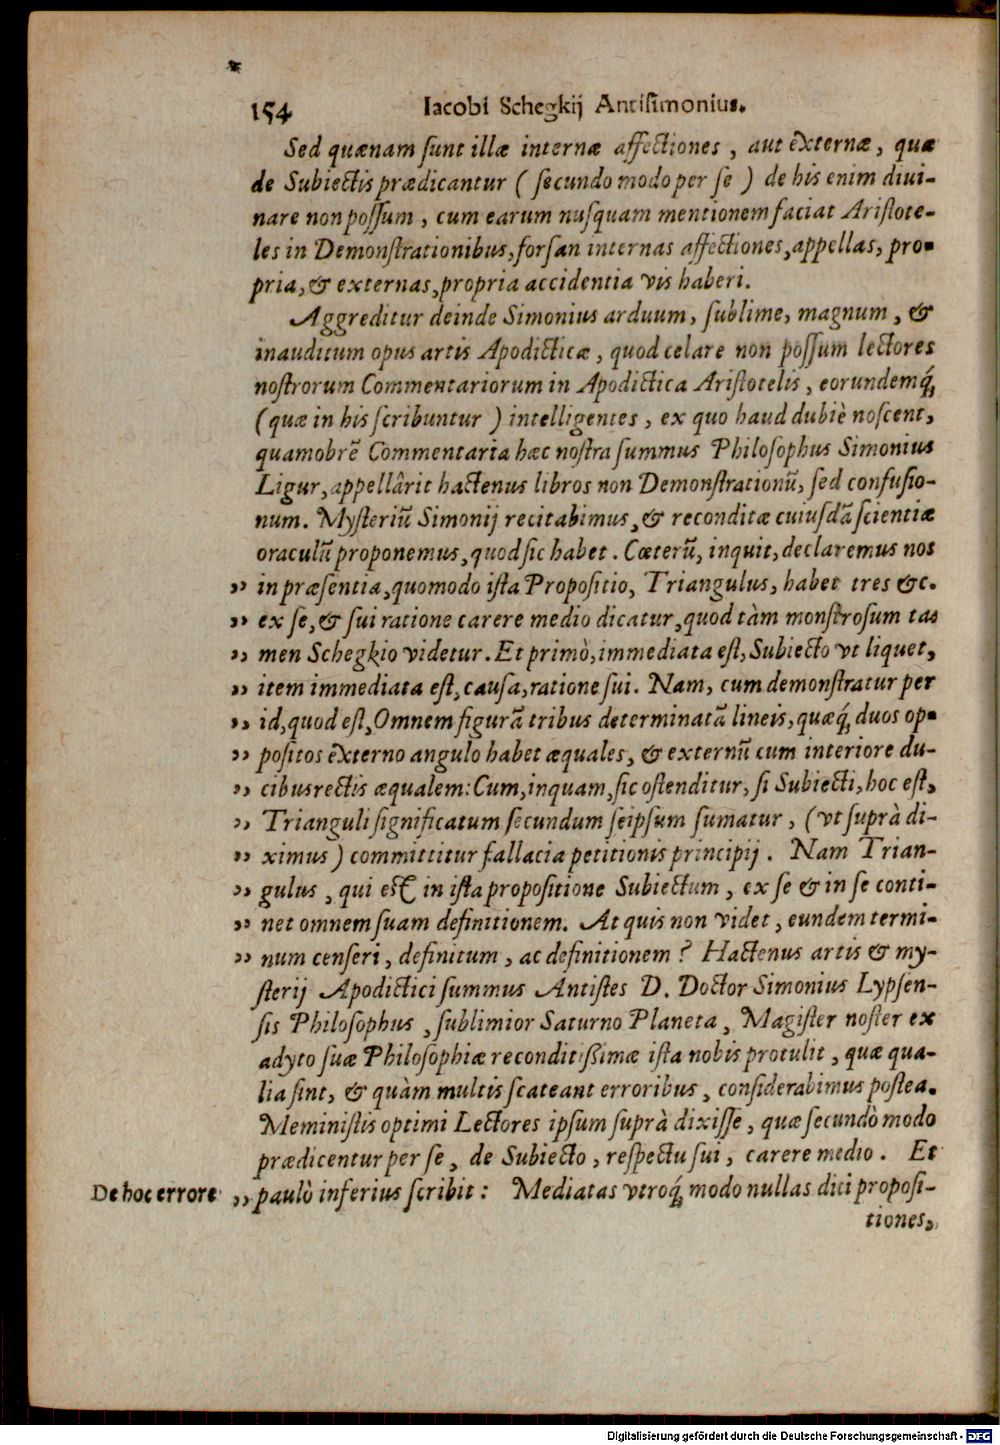 154 Iacobi Schegkij Antisimonius.
Sed quænam ſunt illæ internæ affectiones, aut externæ, quæ
de Subiectis prædicantur (ſecundo modo per ſe) de his enim diui-
nare non poſſum, cum earum nuſquam mentionem faciat Ariſtote-
les in Demonſtrationibus, forſan internas affectiones, appellas, pro-
pria, & externas, propria accidentia vis haberi.
Aggreditur deinde Simonius arduum, ſublime, magnum, &
inauditum opus artis Apodicticæ, quod celare non poſſum lectores
noſtrorum Commentariorum in Apodictica Ariſtotelis, eorundemq́;
(quæ in his ſcribuntur) intelligentes, ex quo haud dubiè noſcent,
quamobrē Commentaria hæc noſtra ſummus Philoſophus Simonius
Ligur, appellârit hactenus libros non Demonſtrationū, ſed confuſio-
num. Myſteriū Simonij recitabimus, & reconditæ cuiuſdā ſcientiæ
oraculū proponemus, quod ſic habet. Cœterū, inquit, declaremus nos
„ in præſentia, quomodo iſta Propoſitio, Triangulus, habet tres &c.
„ ex ſe, & ſui ratione carere medio dicatur, quod tàm monſtroſum ta-
„ men Schegkio videtur. Et primò, immediata eſt, Subiecto vt liquet,
„ item immediata eſt, cauſa, ratione ſui. Nam, cum demonſtratur per
„ id, quod eſt, Omnem figurā tribus determinatā lineis, quæq́; duos op-
„ poſitos externo angulo habet æquales, & externū cum interiore du-
„ cibus rectis æqualem: Cum, inquam, ſic oſtenditur, ſi Subiecti, hoc eſt,
„ Trianguli ſignificatum ſecundum ſeipſum ſumatur, (vt ſuprà di-
„ ximus) committitur fallacia petitionis principij. Nam Trian-
„ gulus, qui eſt in iſta propoſitione Subiectum, ex ſe & in ſe conti-
„ net omnem ſuam definitionem. At quis non videt, eundem termi-
„ num cenſeri, definitum, ac definitionem? Hactenus artis & my-
ſterij Apodictici ſummus Antiſtes D. Doctor Simonius Lypſen-
ſis Philoſophus, ſublimior Saturno Planeta, Magiſter noſter ex
adyto ſuæ Philoſophiæ reconditißimæ iſta nobis protulit, quæ qua-
lia ſint, & quàm multis ſcateant erroribus, conſiderabimus poſtea.
Meminiſtis optimi Lectores ipſum ſuprà dixiſſe, quæ ſecundò modo
prædicentur per ſe, de Subiecto, reſpectu ſui, carere medio. Et
De hoc errore „ paulò inferius ſcribit: Mediatas vtroq́; modo nullas dici propoſi-
tiones,
Digitalisierung gefördert durch die Deutsche Forschungsgemeinschaft - DFG